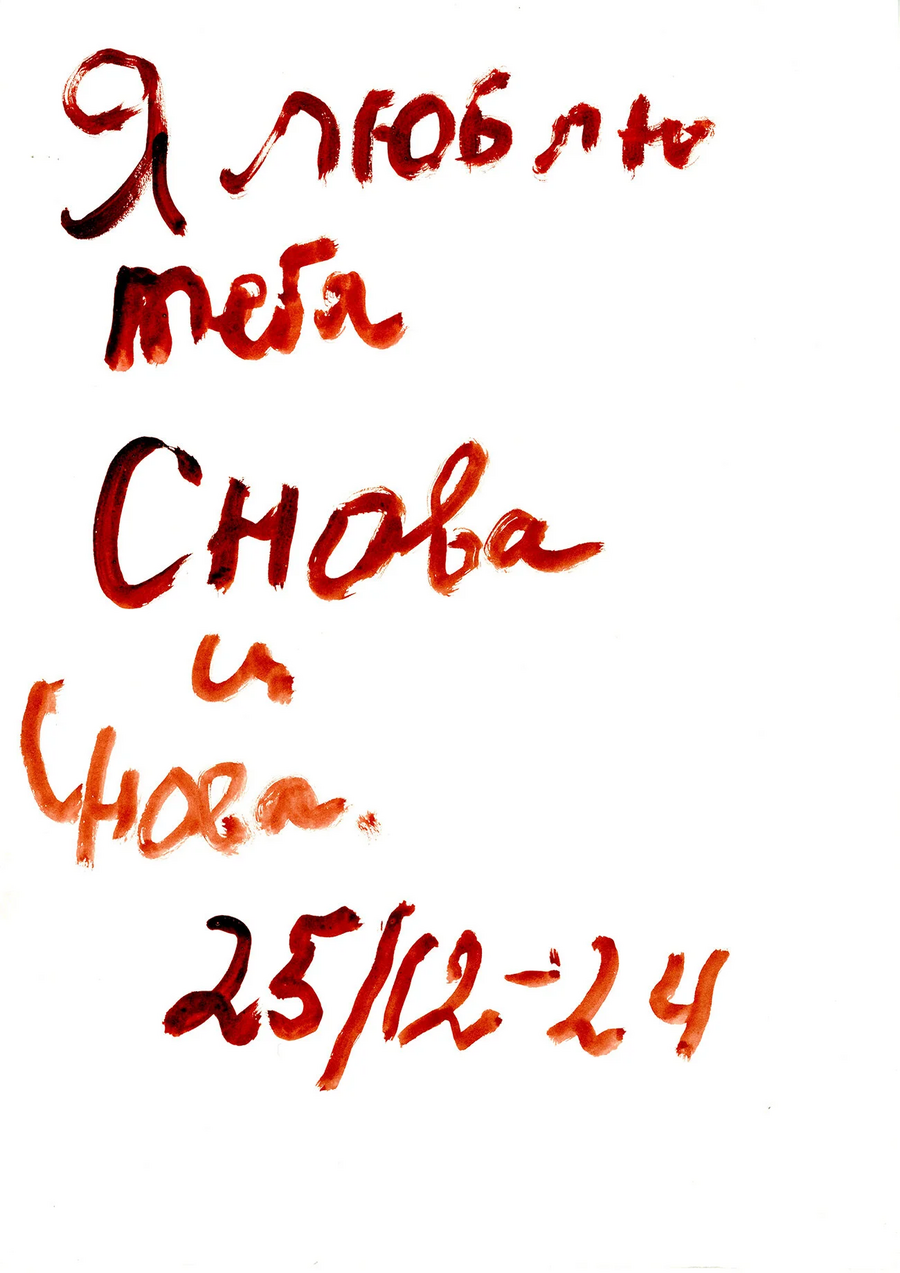 Я люблю
тебя
Снова
и
Снова.
25/12-24